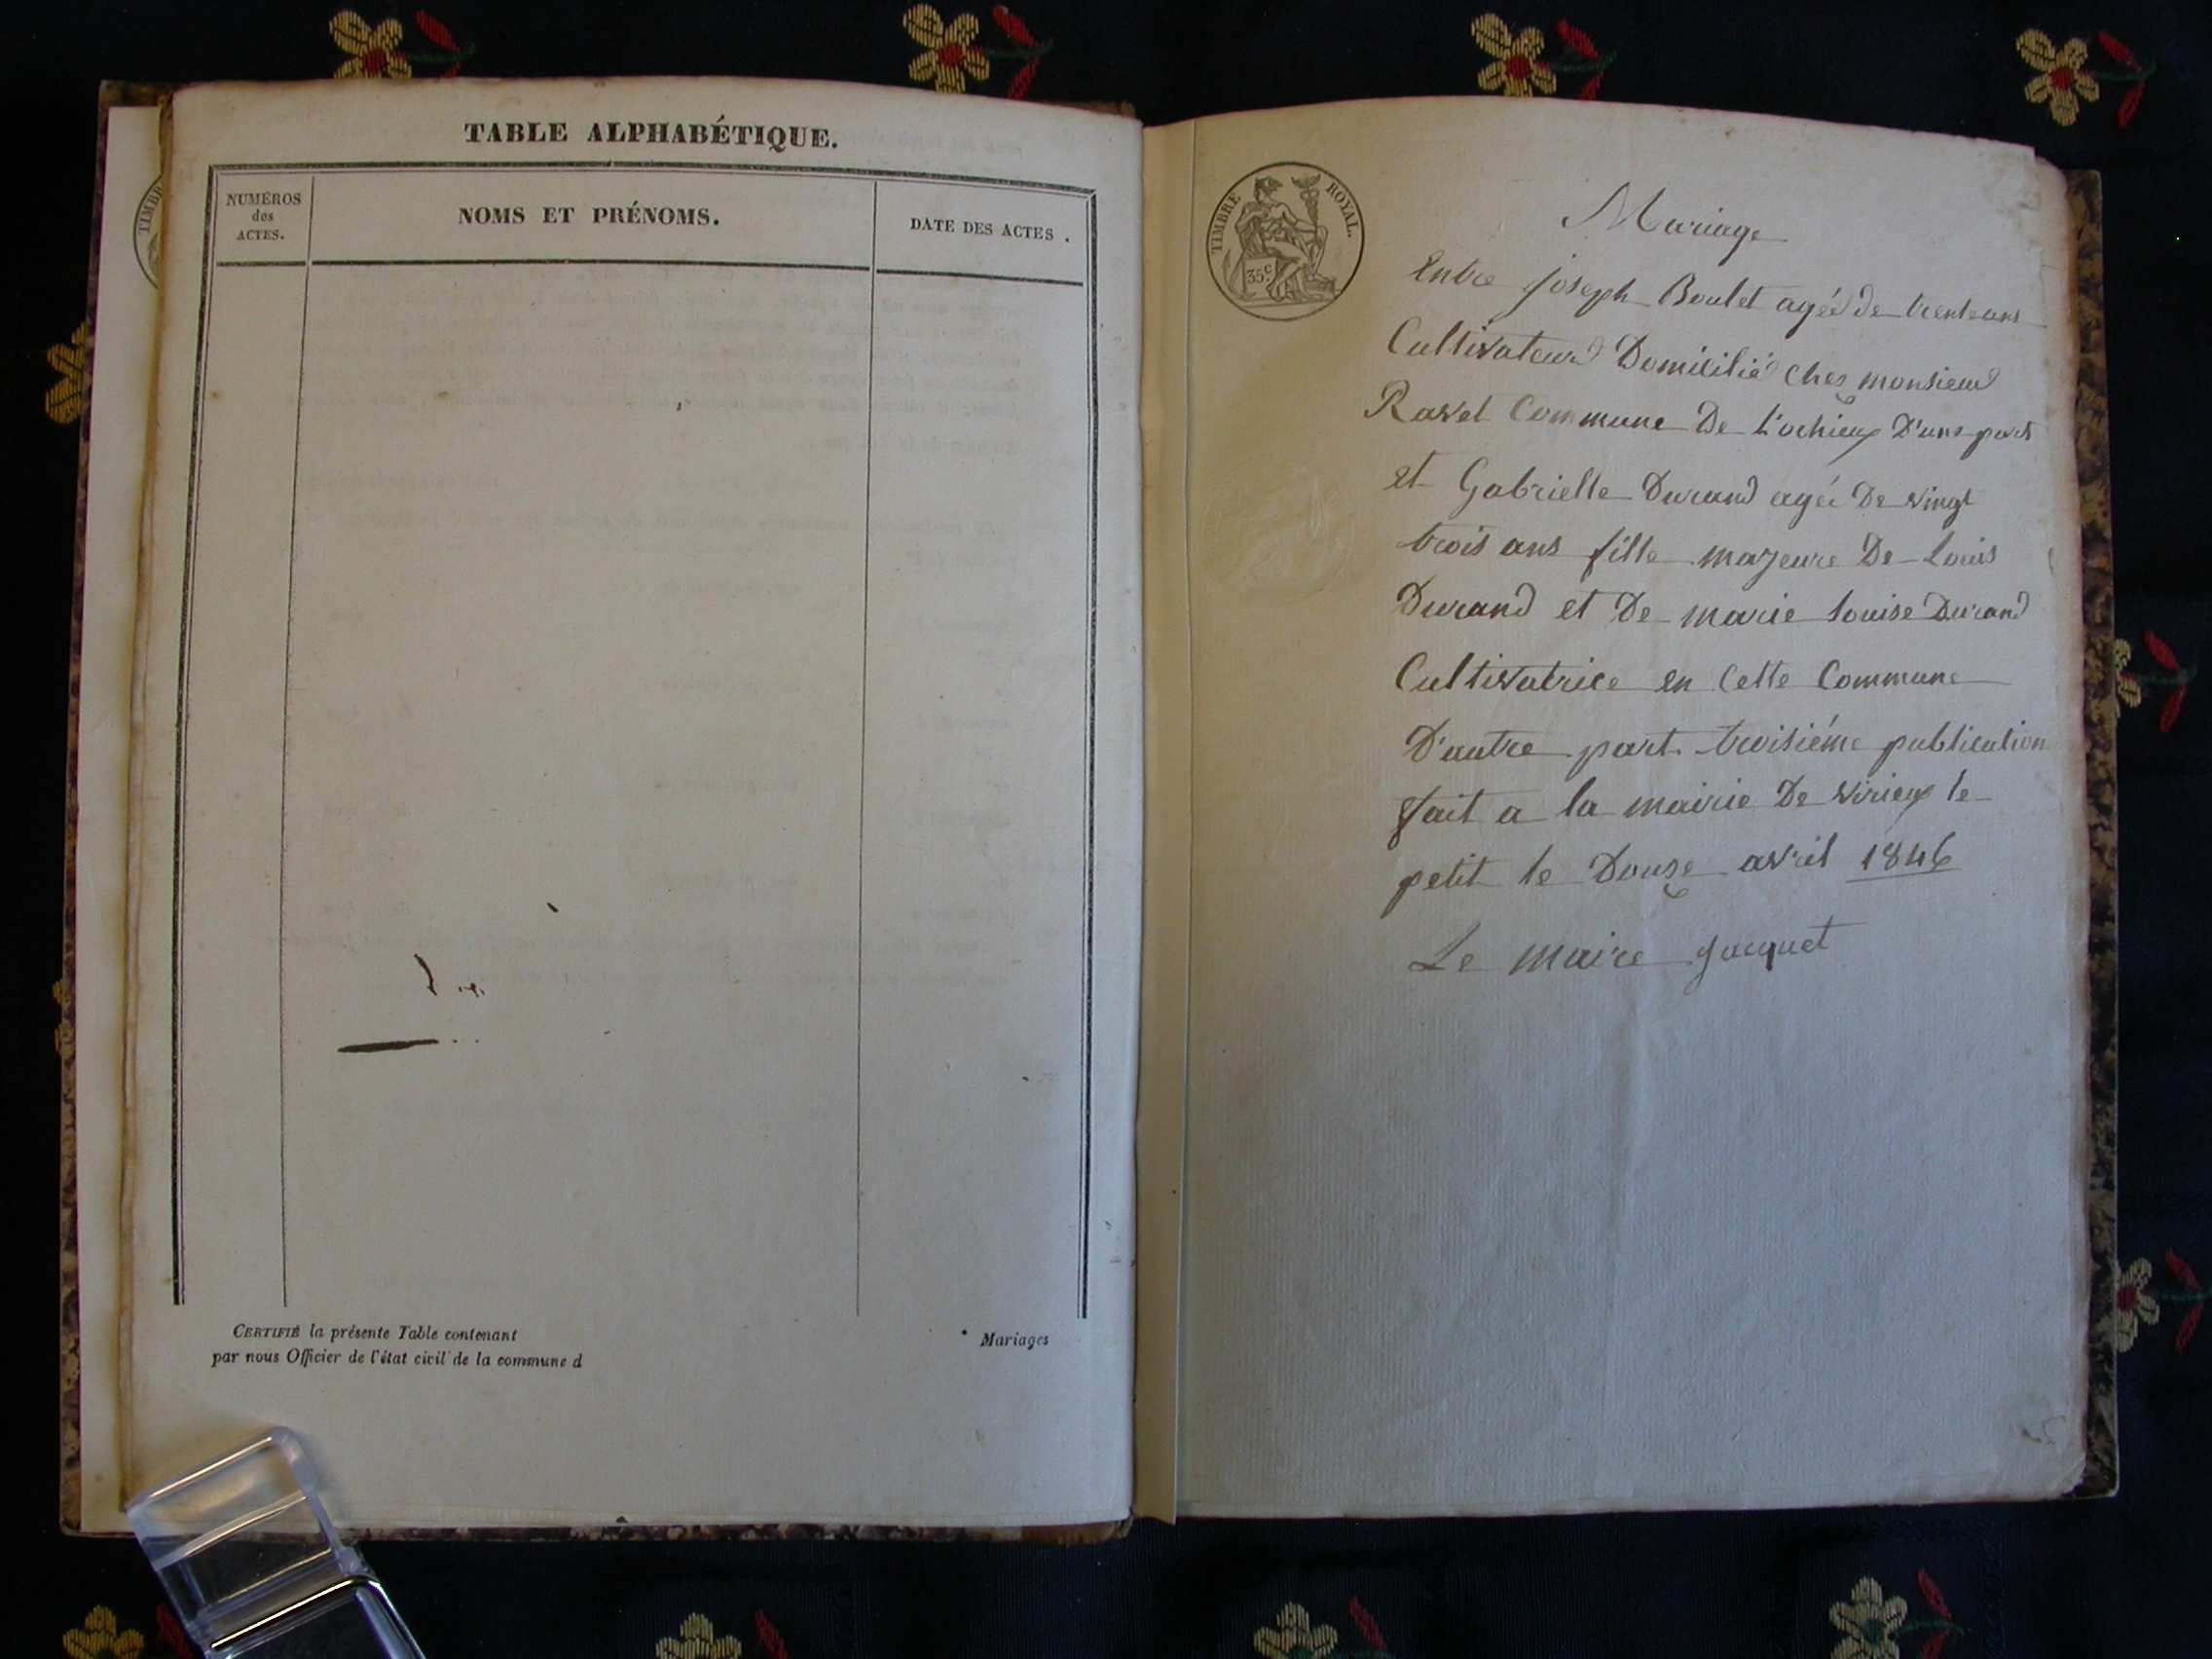 TIMBR
TABLE ALPHABÉTIQUE.
NUMÉROS
des
ACTES.
NOMS ET PRÉNOMS.
DATE DES ACTES.
CERTIFIÉ la présente Table contenant
par nous Officier de l'état civil de la commune d
Mariages
TIMBRE ROYAL.
35 c
Mariage
Entre joseph Boulet agée de trente ans
Cultivateur Domicilié chez monsieur
Ravet Commune De Lochieu D'une part
et Gabrielle Durand agée De vingt
trois ans fille majeure De Louis
Durand et De marie Louise Durand
Cultivatrice en Cette Commune
D'autre part troisiéme publication
fait a la mairie De virieux le
petit le Douze avril 1846
Le maire Jacquet